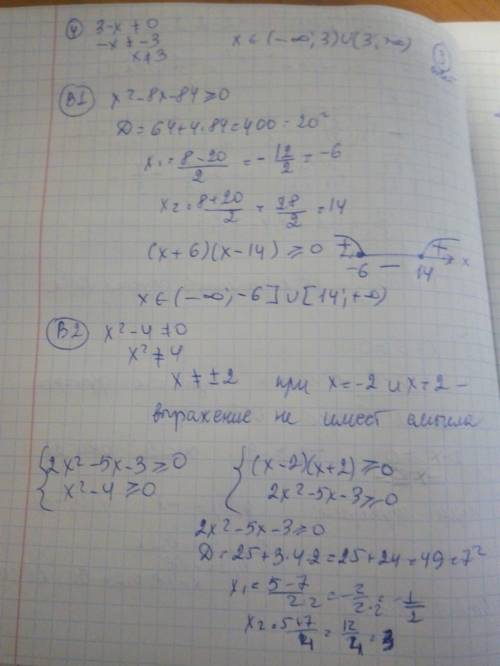 4) 3-x≠0 x ∈ (-∞; 3)∪(3; +∞)
-x≠-3
x≠3
B1 x²-8x-84≥0
D=64+4·84=400=20²
x₁=(8-20)/2=-12/2=-6
x₂=(8+20)/2=28/2=14
(x+6)(x-14)≥0 + -6 — 14 + x
x∈(-∞;-6]∪[14;+∞)
B2 x²-4≠0
x²≠4
x≠±2 при x=-2 и x=2 -
выражение не имеет смысла
{2x²-5x-3≥0 {(x-2)(x+2)≥0
{x²-4≥0 {2x²-5x-3≥0
2x²-5x-3≥0
D=25+3·4·2=25+24=49=7²
x₁=(5-7)/(2·2)=-2/(2·2)=-1/2
x₂=(5+7)/4=12/4=3